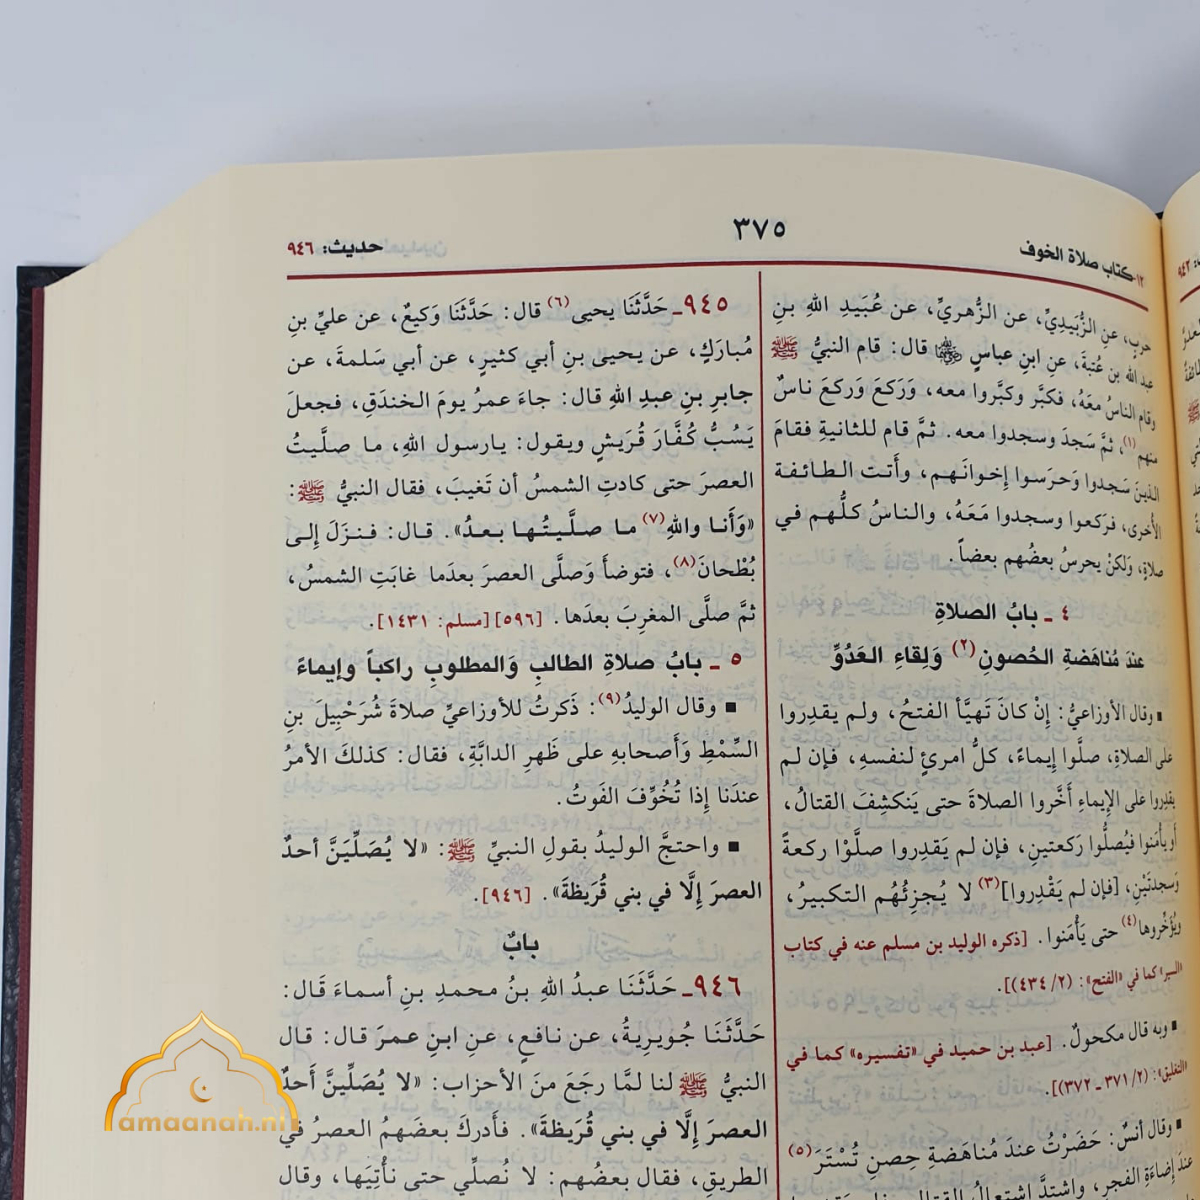 ١٢- كتاب صلاة الخوف
٣٧٥
حديث: ٩٤٦
حربٍ، عنِ الزُّبَيدِيِّ، عن الزُّهريِّ، عن عُبَيدِ اللهِ بنِ
عبدِ الله بن عُتبةَ، عنِ ابنِ عباسٍ رضي الله عنهما قال: قام النبيُّ ﷺ
وقام الناسُ معَهُ، فكبَّر وكبَّروا معه، وَرَكعَ وَركَعَ ناسٌ
منهم (١)، ثمَّ سَجدَ وسجدوا معه. ثمَّ قام للثانيةِ فقامَ
الذينَ سَجدوا وَحَرَسوا إخوانَـهم، وأَتت الطائفة
الأُخرى، فرَكعوا وسجدوا مَعَهُ، والناسُ كلُّهم في
صلاةٍ، وَلكنْ يحرسُ بعضُهم بعضاً.
٤ ـ بابُ الصلاةِ
عندَ مُناهَضةِ الحُصونِ (٢) وَلِقاءِ العَدُوِّ
■ وقال الأوزاعيُّ: إنْ كانَ تَهيَّأ الفتحُ، ولم يقدِروا
على الصلاةِ، صلَّوا إيماءً، كلُّ امرئٍ لنفسهِ، فإن لم
يقدِروا على الإيماءِ أخَّروا الصلاةَ حتى يَنكشِفَ القتالُ،
أو يأمَنوا فيُصلُّوا رَكعتينِ، فإن لم يَقدِروا صلَّوْا ركعةً
وَسجدتَيْنِ، [فإن لم يَقْدِروا] (٣) لا يُجزِئُهُم التكبيرُ،
ويُؤَخِّروها (٤) حتى يَأْمَنوا. [ذكره الوليد بن مسلم عنه في كتاب
«السير» كما في «الفتح»: (٢/ ٤٣٤)].
■ وبه قال مكحولٌ. [عبد بن حميد في «تفسيره» كما في
«التغليق»: (٢/ ٣٧١ ـ ٣٧٢)].
■ وقال أنسٌ: حَضَرْتُ عندَ مُناهَضةِ حِصنِ تُسْتَرَ (٥)
عندَ إضاءَةِ الفجر، واشتدَّ اشتعالُ القتال
٩٤٥ـ حَدَّثَنَا يحيى (٦) قال: حَدَّثَنَا وَكيعٌ، عن عليِّ بنِ
مُبارَكٍ، عن يحيى بنِ أبي كثيرٍ، عن أبي سَلمةَ، عن
جابرِ بنِ عبدِ اللهِ قال: جاءَ عمرُ يومَ الخندَقِ، فجعلَ
يَسُبُّ كُفَّارَ قُرَيشٍ ويقول: يارسول اللهِ، ما صلَّيتُ
العصرَ حتى كادتِ الشمسُ أن تَغيبَ، فقال النبيُّ ﷺ:
«وَأَنا واللهِ (٧) ما صلَّيتُها بعدُ». قال: فنزَلَ إلى
بُطْحانَ (٨)، فتوضأَ وَصلَّى العصرَ بعدَما غابَتِ الشمسُ،
ثمَّ صلَّى المغرِبَ بعدَها. [٥٩٦] [مسلم: ١٤٣١].
٥ ـ بابُ صلاةِ الطالبِ وَالمطلوبِ راكباً وإيماءً
■ وقال الوليدُ (٩): ذَكرتُ للأوزاعيِّ صلاةَ شُرَحْبِيلَ بنِ
السِّمْطِ وَأَصحابهِ على ظَهرِ الدابَّةِ، فقال: كذلكَ الأمرُ
عندَنا إذا تُخُوِّفَ الفَوتُ.
■ واحتجَّ الوليدُ بقولِ النبيِّ ﷺ: «لا يُصَلِّيَنَّ أحدٌ
العصرَ إلَّا في بني قُرَيظةَ». [٩٤٦].
بابٌ
٩٤٦ـ حَدَّثَنَا عبدُ اللهِ بنُ محمدِ بنِ أسماءَ قَال:
حَدَّثَنَا جُويرِيةُ، عن نافعٍ، عنِ ابنِ عمرَ قال: قال
النبيُّ ﷺ لنا لمَّا رجَعَ منَ الأحزاب: «لا يُصَلِّيَنَّ أَحدٌ
العصرَ إلَّا في بني قُرَيظةَ». فأَدركَ بعضَهمُ العصرُ في
الطريقِ، فقال بعضُهم: لا نُصلِّي حتى نأْتِيَها، وقال
amaanah.nl